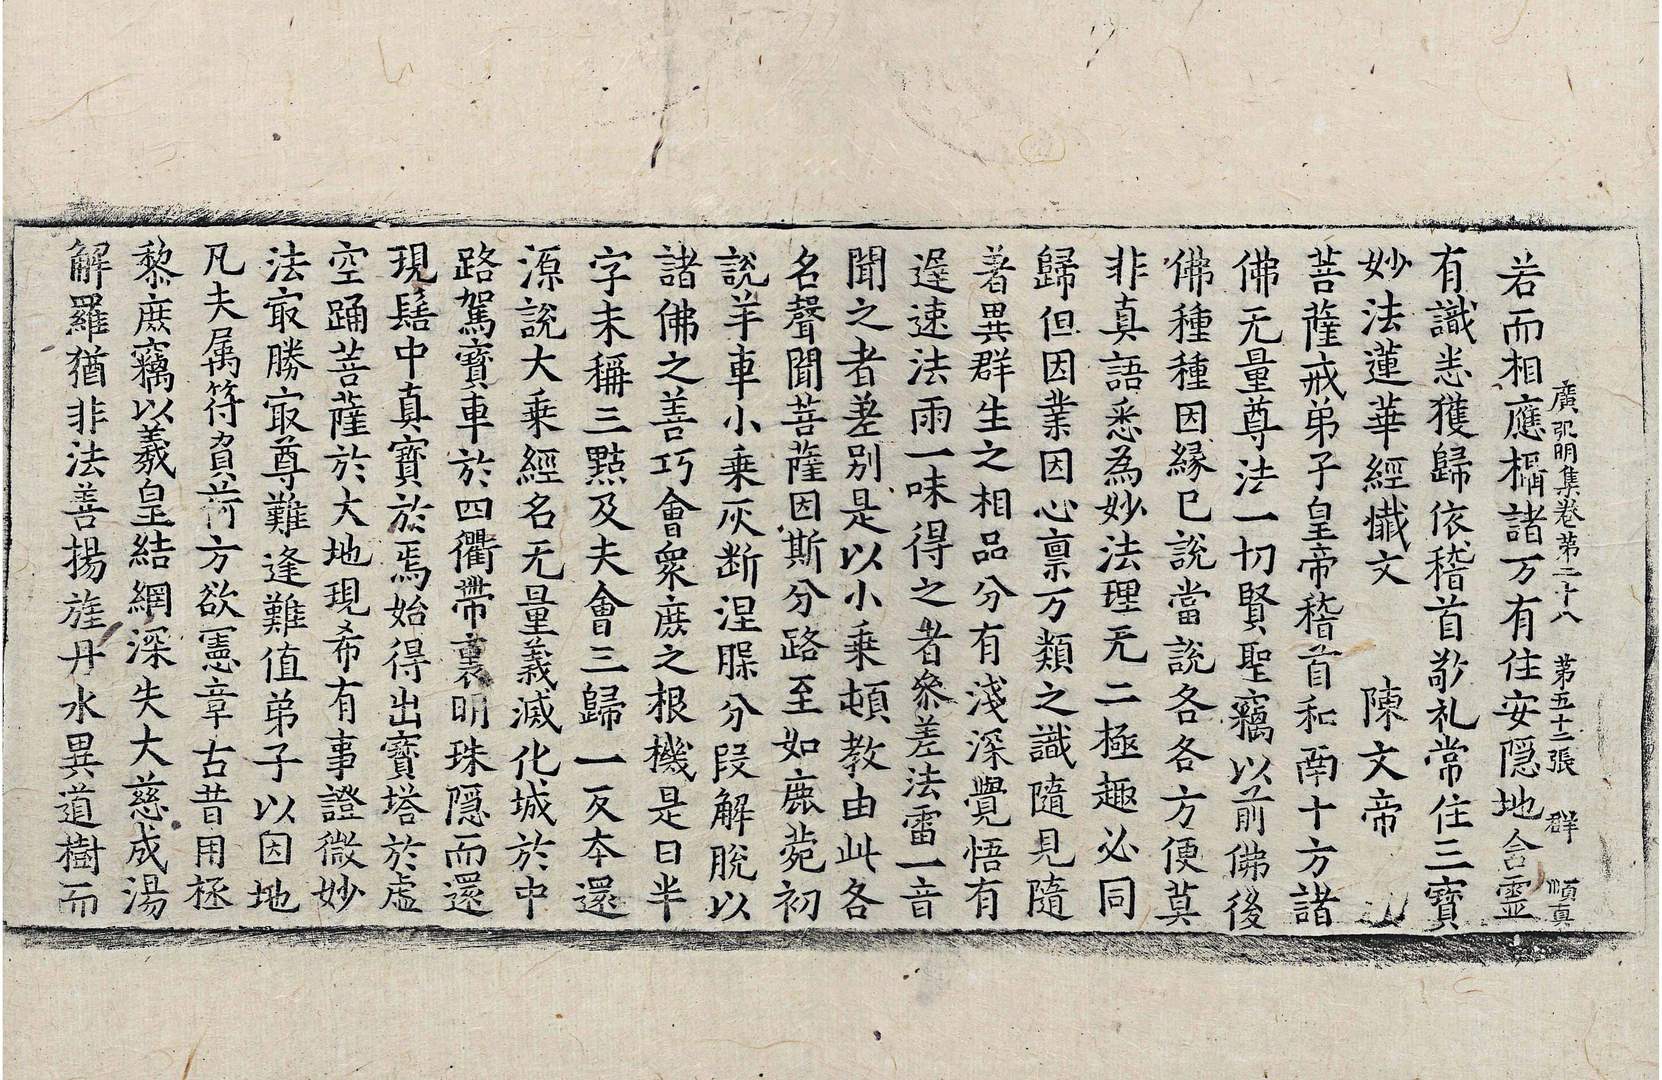 廣弘明集卷第二十八 第五十二張 群 順真
若而相應栖諸万有住安隱地含靈
有識恙獲歸依稽首敬礼常住三寶
妙法蓮華經懺文 陳文帝
菩薩戒弟子皇帝稽首和南十方諸
佛无量尊法一切賢聖竊以前佛後
佛種種因緣已說當說各各方便莫
非真語悉為妙法理无二極趣必同
歸但因業因心禀万類之識隨見隨
著異群生之相品分有淺深覺悟有
遲速法雨一味得之者叅差法雷一音
聞之者差別是以小乘頓教由此各
名聲聞菩薩因斯分路至如鹿菀初
說羊車小乘灰断涅槃分段解脫以
諸佛之善巧會衆庶之根機是曰半
字未稱三點及夫會三歸一反本還
源說大乘經名无量義滅化城於中
路駕寶車於四衢帶裏明珠隱而還
現髻中真寶於焉始得出寶塔於虛
空踊菩薩於大地現希有事證微妙
法冣勝冣尊難逢難值弟子以因地
凡夫属符負荷方欲憲章古昔用拯
黎庶竊以羲皇結網深失大慈成湯
解羅猶非法善揚旌丹水異道樹而